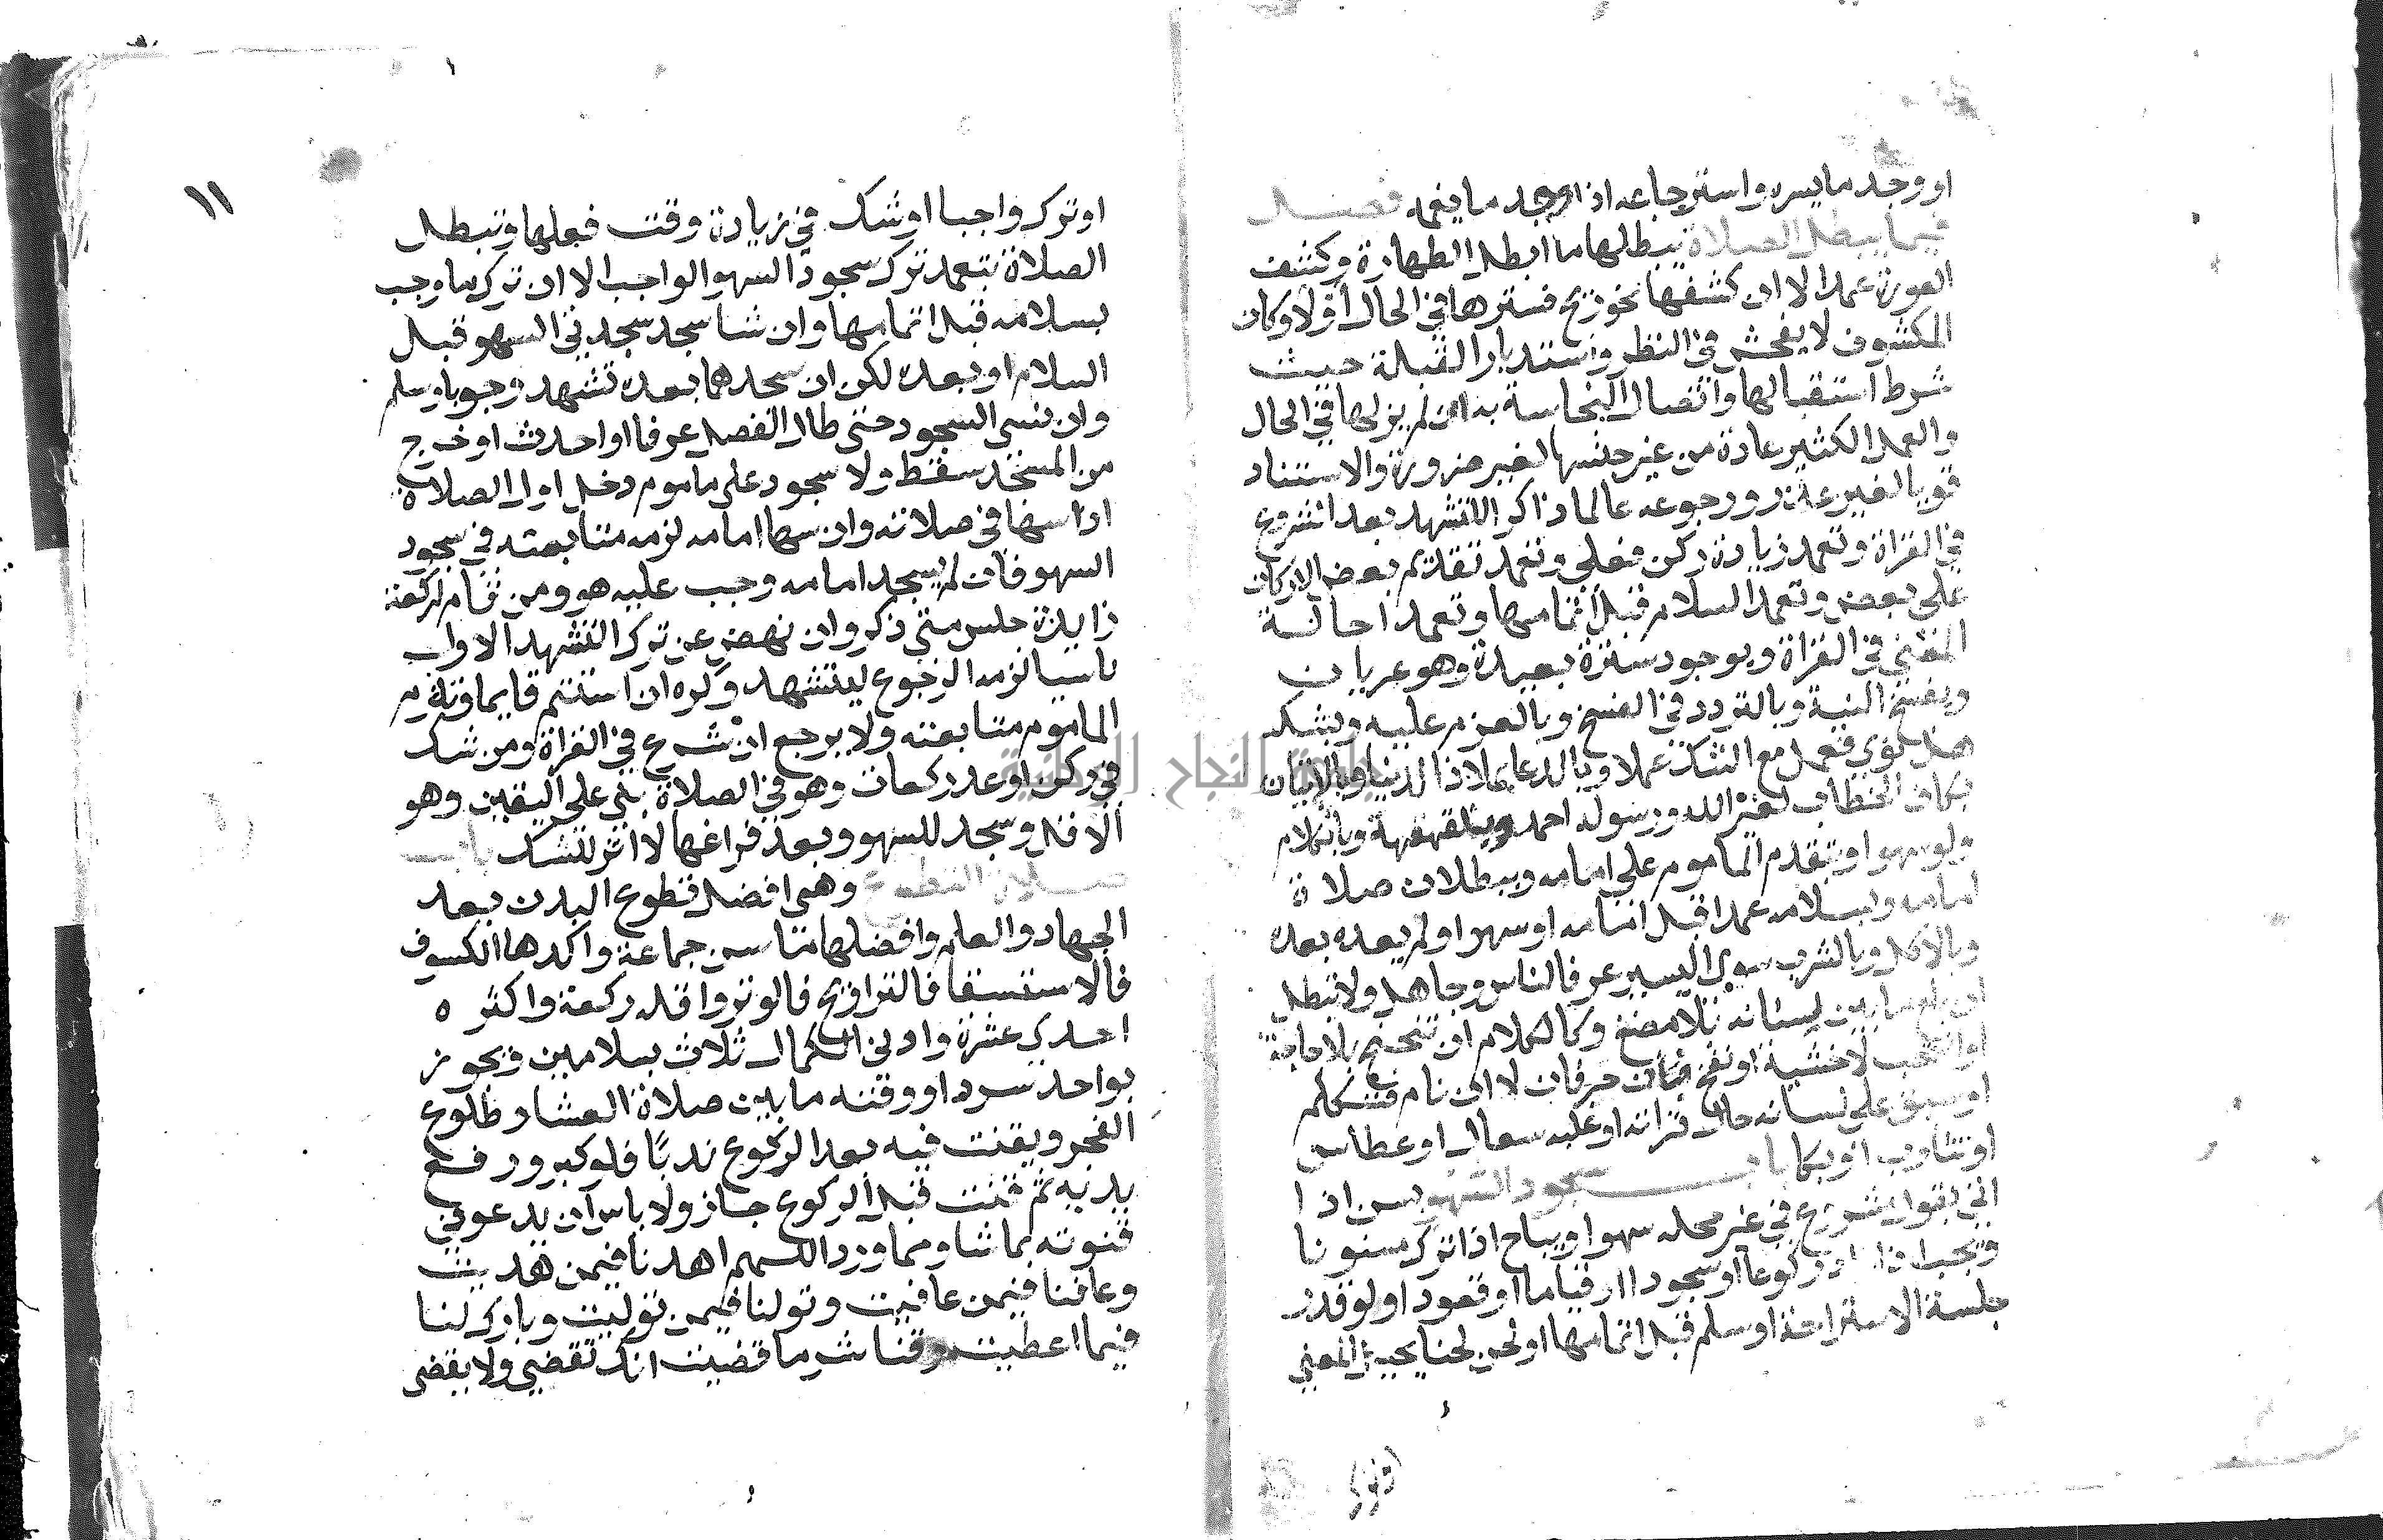 او وجد ما يسره واسترجاعه اذا وجد ما يغمه فصل
فيما يبطل الصلاة يبطلها ما ابطل الطهارة وكشف
العورة عمدا لا ان كشفها نحو ريح فسترها في الحال أو لا وكان
المكشوف لا يفحش في النظر واستدبار القبلة حيث
شرط استقبالها واتصال النجاسة به ان لم يزلها في الحال
والعمل الكثير عادة من غير جنسها لغير ضرورة والاستناد
قويا لغير عذر ورجوعه عالما ذاكرا للتشهد بعد الشروع
في القراة وتعمد زيادة ركن فعلي وتعمد تقديم بعض الاركان
على بعض وتعمد السلام قبل اتمامها وتعمد احالة
المعنى في القراة وبوجود سترة بعيدة وهو عريان
وبفسخ النية وبالتردد في الفسخ وبالعزم عليه وبشكه
هل نوى فعمل مع الشك عملا وبالدعا بملاذ الدنيا وبالاتيان
بكاف الخطاب لغير الله ورسوله احمد وبالقهقهة وبالكلام
ولو سهوا وبتقدم الماموم على امامه وببطلان صلاة
امامه وبسلامه عمدا قبل امامه او سهوا ولم يعده بعده
وبالاكل وبالشرب سوى اليسير عرفا لناس وجاهل ولا تبطل
ان بلع ما بين اسنانه بلا مضغ وكالكلام ان تنحنح بلا حاجة
او انتحب لا خشية او نفخ فبان حرفان لا ان نام فتكلم
او سبق على لسانه حال قراته او غلبه سعال او عطاس
او تثاوب او بكا باب سجود السهو يسن اذا
اتى بقول مشروع في غير محله سهوا ويباح اذا ترك مسنونا
ويجب اذا زاد ركوعا او سجودا او قياما او قعودا ولو قدر
جلسة الاستراحة او سلم قبل اتمامها او لحن لحنا يحيل المعنى
او ترك
١١
او ترك واجبا او شك في زيادة وقت فعلها وتبطل
الصلاة بتعمد ترك سجود السهو الواجب الا ان ترك ما وجب
بسلامه قبل اتمامها وان شا سجد سجدتي السهو قبل
السلام او بعده لكن ان سجدهما بعده تشهد وجوبا وسلم
وان نسي السجود حتى طال الفصل عرفا او احدث او خرج
من المسجد سقط ولا سجود على ماموم دخل اول الصلاة
اذا سها في صلاته وان سها امامه لزمه متابعته في سجود
السهو فان لم يسجد امامه وجب عليه هو ومن قام لركعة
زايدة جلس متى ذكر وان نهض عن ترك التشهد الاول
ناسيا لزمه الرجوع ليتشهد وكره ان استتم قايما وتلزم
الماموم متابعته ولا يرجع ان شرع في القراة ومن شك
في ركن او عدد ركعات وهو في الصلاة بنى على اليقين وهو
الاقل وسجد للسهو وبعد فراغها لا اثر للشك باب
صلاة التطوع وهي افضل تطوع البدن بعد
الجهاد والعلم وافضلها ما سن جماعة واكدها الكسوف
فالاستسقا فالتراويح فالوتر واقله ركعة واكثره
احدى عشرة وادنى الكمال ثلاث بسلامين ويجوز
بواحد سردا ووقته ما بين صلاة العشا وطلوع
الفجر ويقنت فيه بعد الركوع ندبًا فلو كبر ورفع
يديه ثم قنت قبل الركوع جاز ولا باس ان يدعو في
قنوته بما شا ومما ورد اللهم اهدنا فيمن هديت
وعافنا فيمن عافيت وتولنا فيمن توليت وبارك لنا
فيما اعطيت وقنا شر ما قضيت انك تقضي ولا يقضى
جامعة النجاح الوطنية